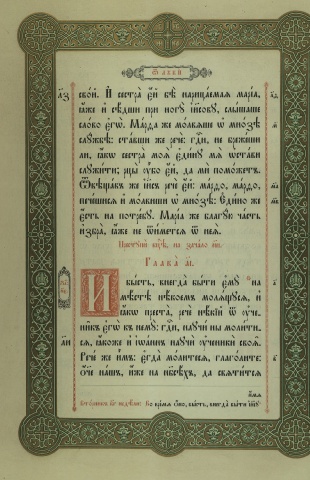 Ѿ лꙋкѝ
свой. И҆ сестра̀ є҆́й бѣ̀ нарица́емаѧ марі́а,
ꙗ҆́же и҆ сѣ́дши при ногꙋ̀ і҆и҃сову, слы́шаше
сло́во є҆гѡ̀. Ма́рѳа же мо́лвѧше ѡ҆ мно́зѣ
слꙋ́жбѣ: ста́вши же речѐ: гдⷭ҇и, не бреже́ши
ли, ꙗ҆́кѡ сестра̀ моѧ̀ є҆ди́нꙋ мѧ̀ ѡ҆ста́ви
слꙋжи́ти; рцы̀ ᲂу҆̀бо є҆́й, да мѝ помо́жетъ.
Ѿвѣща́въ же і҆и҃съ речѐ є҆́й: ма́рѳо, ма́рѳо,
пече́шисѧ и҆ мо́лвиши ѡ҆ мно́зѣ: Є҆ди́но же
є҆́сть на потре́бꙋ. Марі́а же благꙋ́ю ча́сть
и҆збра̀, ꙗ҆́же не ѿи́метсѧ ѿ неѧ̀.
Глава̀ а҃і.
И҆ бы́сть, внегда̀ бы́ти є҆мꙋ̀ на
мѣ́стѣ нѣ́коемъ молѧ́щꙋсѧ, и҆
ꙗ҆́кѡ преста̀, речѐ нѣ́кїй ѿ ᲂу҆чє-
ни̑къ є҆гѡ̀ къ немꙋ̀: гдⷭ҇и, наꙋчи́ ны моли́ти-
сѧ, ꙗ҆́коже и҆ і҆ѡа́ннъ наꙋчѝ ᲂу҆ченикѝ своѧ̑.
Рече́ же и҆̀мъ: є҆гда̀ мо́литесѧ, глаго́лите:
Ѻ҆́ч҃е на́шъ, и҆́же на нб҃сѣ́хъ, да свѧти́тсѧ
и҆́мѧ